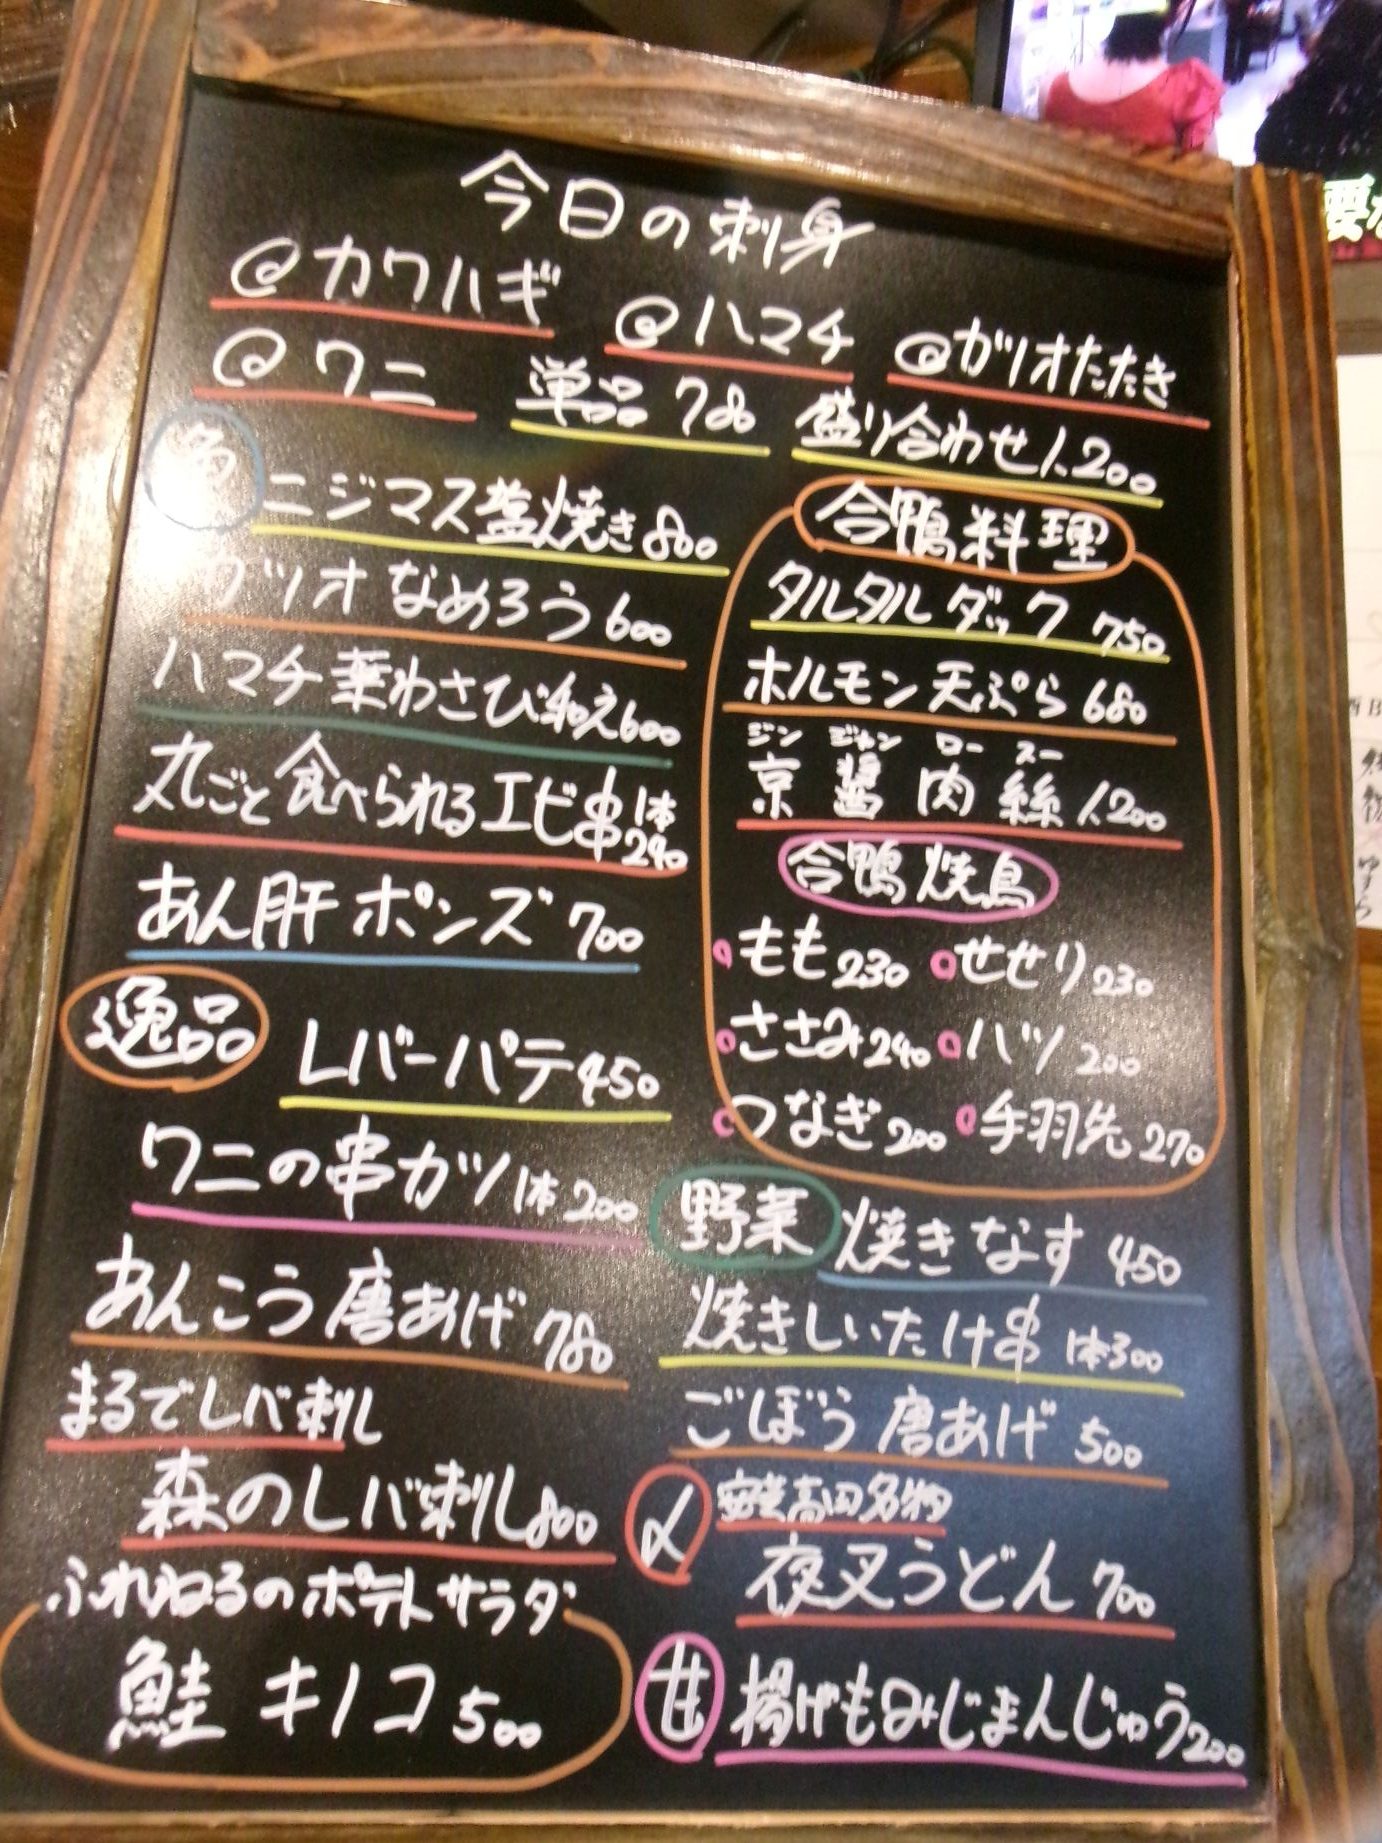 今日の刺身
@カワハギ @ハマチ @カツオたたき
@ワニ 単品780 盛り合わせ1.200
魚 ニジマス塩焼き800
カツオなめろう600
ハマチ葉わさび和え600
丸ごと食べられるエビ串1本290
あん肝ポンズ700
逸品 レバーパテ450
ワニの串カツ1本200
あんこう唐あげ780
まるでレバ刺し
森のレバ刺し800
ふれねるのポテトサラダ
鮭キノコ500
合鴨料理
タルタルダック750
ホルモン天ぷら680
ジンジャンロースー
京醤肉絲1.200
合鴨焼鳥
もも230 せせり230
ささみ240 ハツ200
つなぎ200 手羽先270
野菜 焼きなす450
焼きしいたけ串1本300
ごぼう唐あげ500
〆 安芸高田名物
夜叉うどん700
甘 揚げもみじまんじゅう200
要な